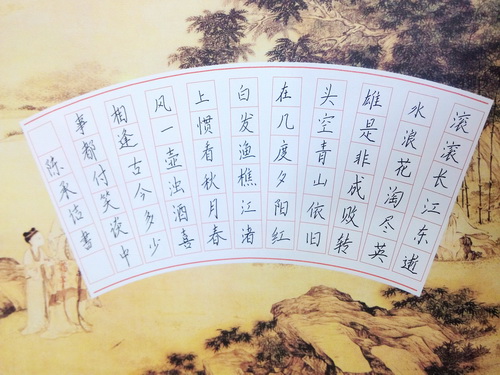 滚滚长江东逝
水浪花淘尽英
雄是非成败转
头空青山依旧
在几度夕阳红
白发渔樵江渚
上惯看秋月春
风一壶浊酒喜
相逢古今多少
事都付笑谈中
陈承信书